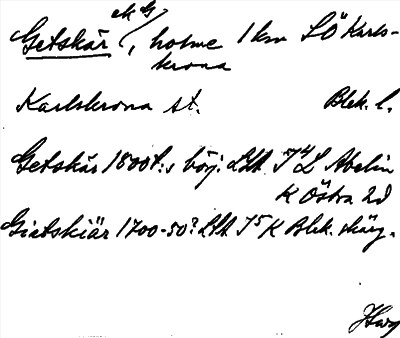 ek G/
Getskär, holme 1 km SÖ Karls-
krona
Karlskrona st. Blek. l.
Getskär 1800t:s börj. Lth. J4L Abelin
K Östra 2d
Gietskiär 1700-50? Lth J5K Blek. skärg.